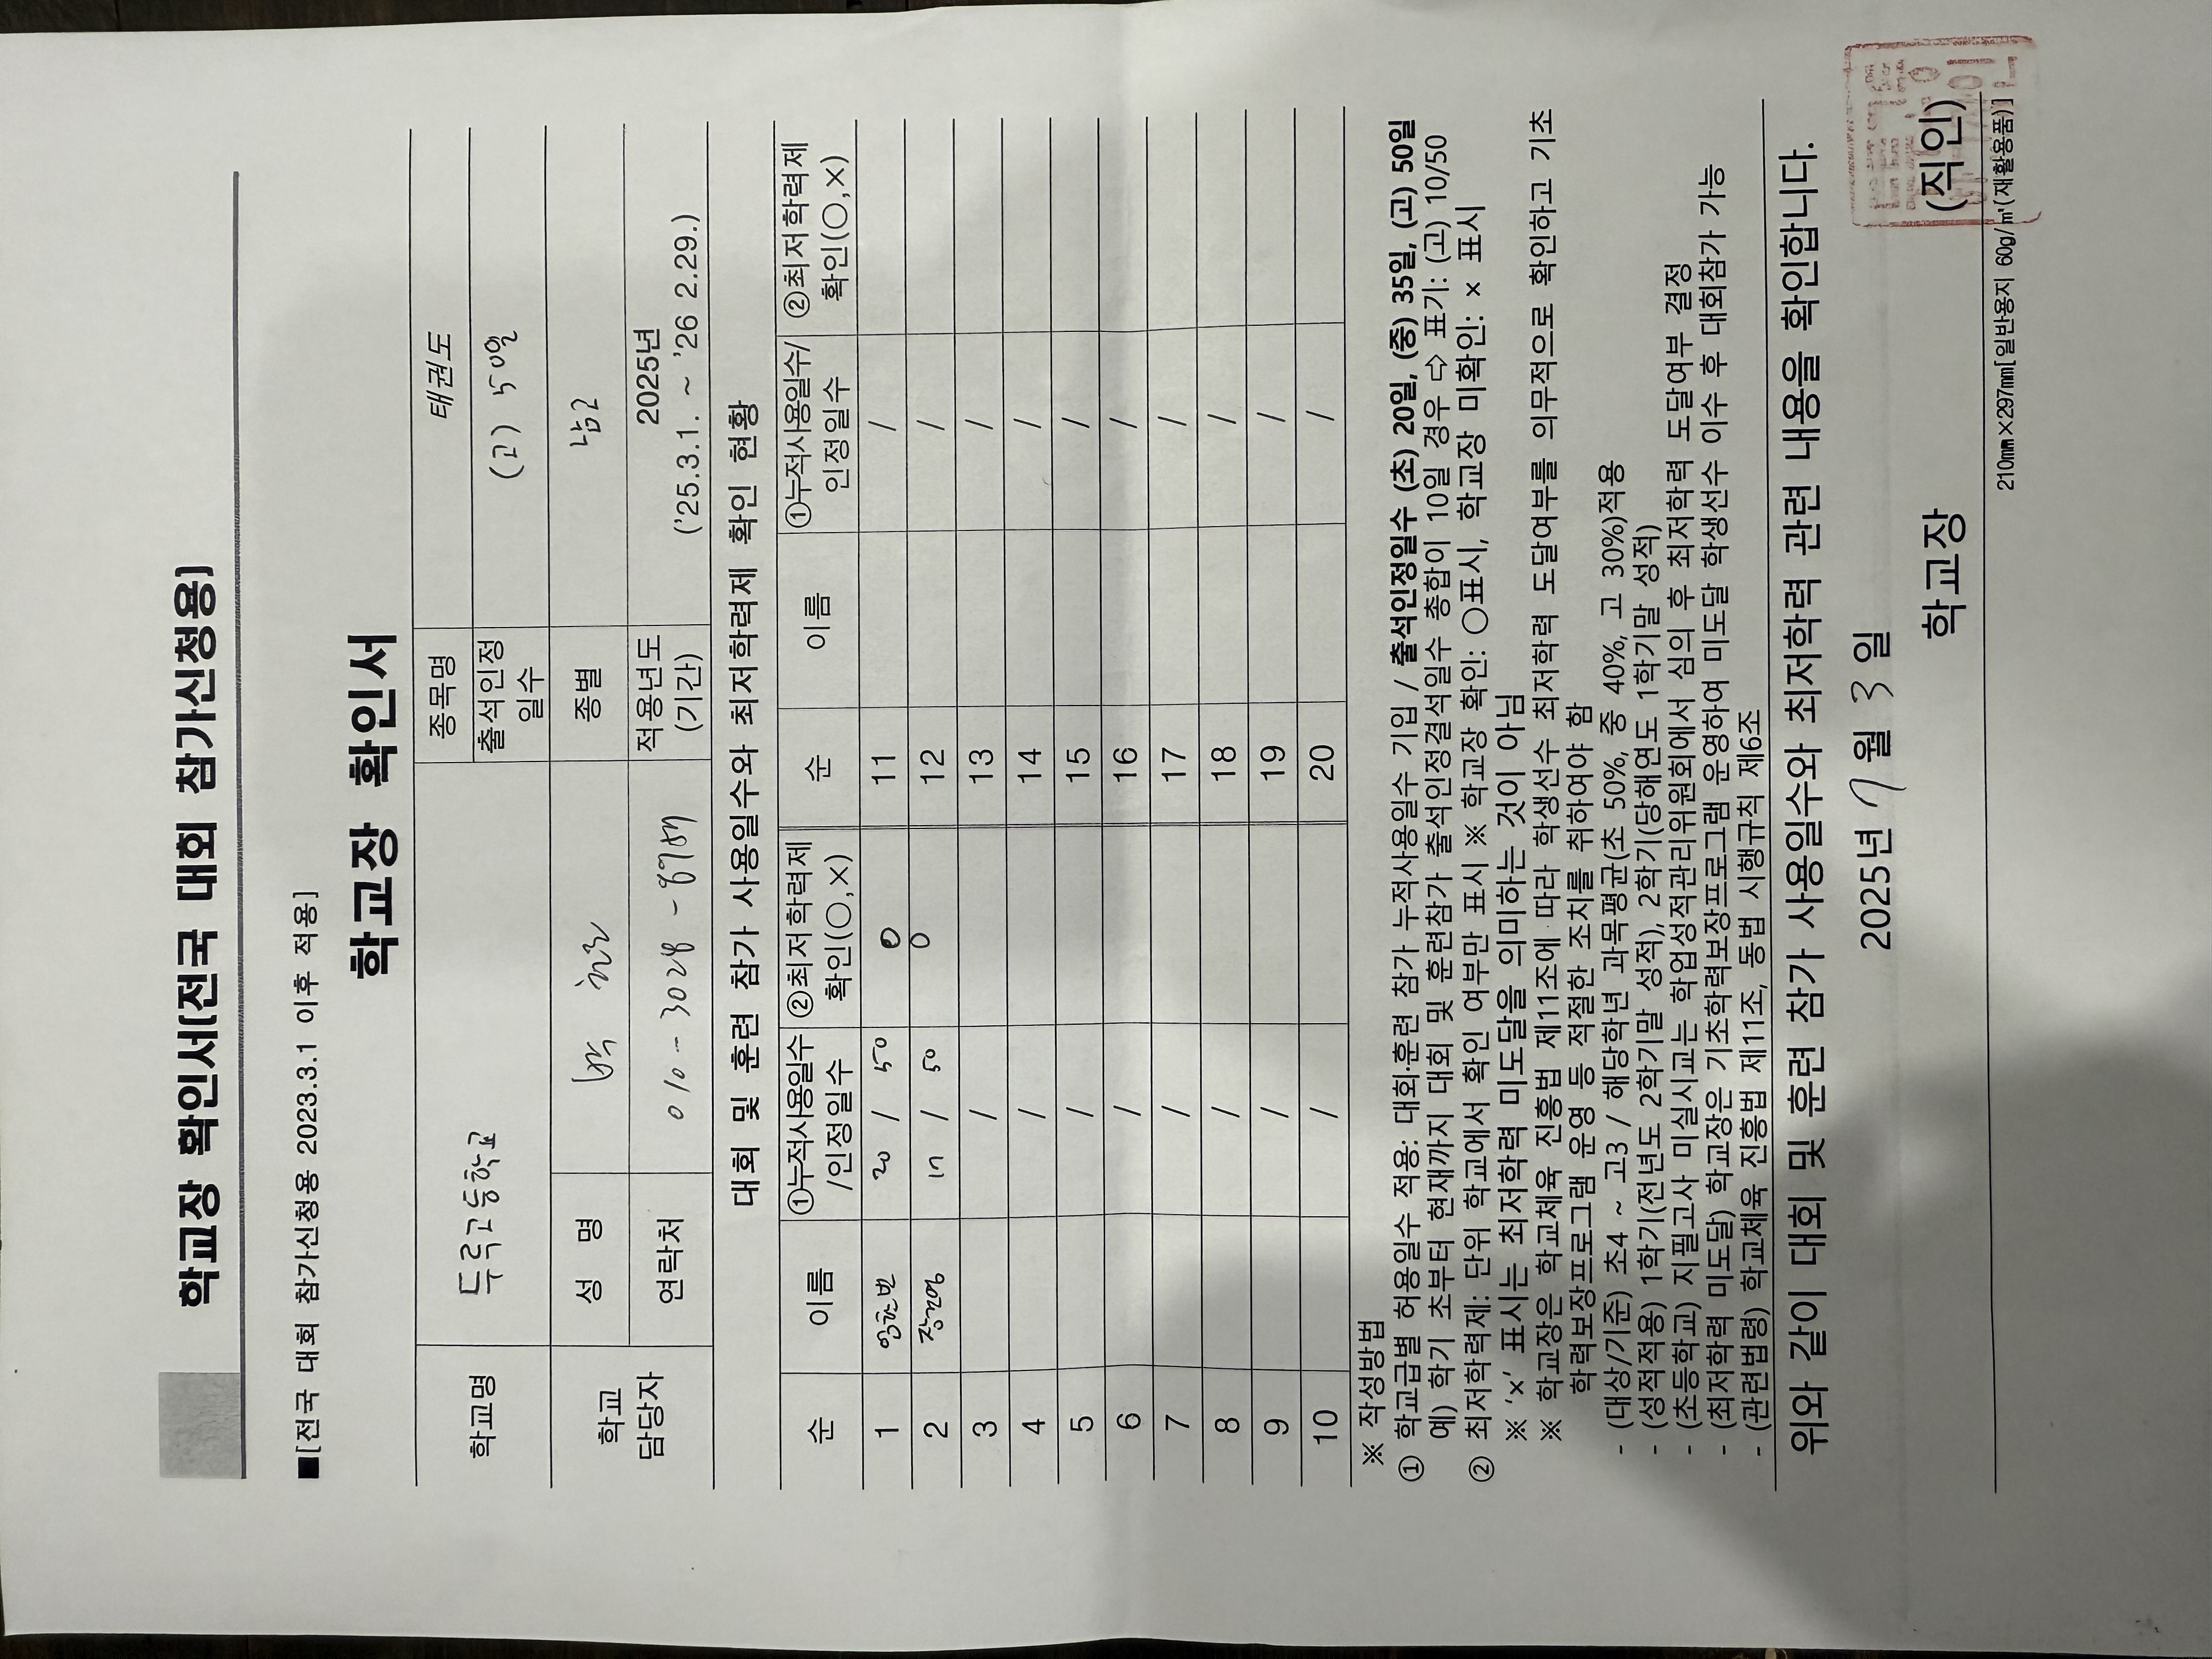 학교장 확인서(전국 대회 참가신청용)
■[전국 대회 참가신청용 2023.3.1 이후 적용]
학교장 확인서
학교명 두루고등학교 종목명 태권도
출석인정 일수 (고) 50일
학교 담당자 성 명 종별 남고
연락처 010-3028-8757 적용년도 (기간) 2025년 ('25.3.1. ~ '26 2.29.)
대회 및 훈련 참가 사용일수와 최저학력제 확인 현황
순 이름 ①누적사용일수/인정일수 ②최저학력제 확인(○,×) 순 이름 ①누적사용일수/인정일수 ②최저학력제 확인(○,×)
1 20 / 50 O 11 /
2 17 / 50 O 12 /
3 / 13 /
4 / 14 /
5 / 15 /
6 / 16 /
7 / 17 /
8 / 18 /
9 / 19 /
10 / 20 /
※ 작성방법
① 학교급별 허용일수 적용: 대회·훈련 참가 누적사용일수 기입 / 출석인정일수 (초) 20일, (중) 35일, (고) 50일
예) 학기 초부터 현재까지 대회 및 훈련참가 출석인정결석일수 총합이 10일 경우 ⇨ 표기: (고) 10/50
② 최저학력제: 단위 학교에서 확인 여부만 표시 ※ 학교장 확인: ○표시, 학교장 미확인: × 표시
※ '×' 표시는 최저학력 미도달을 의미하는 것이 아님
※ 학교장은 학교체육 진흥법 제11조에 따라 학생선수 최저학력 도달여부를 의무적으로 확인하고 기초
학력보장프로그램 운영 등 적절한 조치를 취하여야 함
- (대상/기준) 초4 ~ 고3 / 해당학년 과목평균(초 50%, 중 40%, 고 30%)적용
- (성적적용) 1학기(전년도 2학기말 성적), 2학기(당해연도 1학기말 성적)
- (초등학교) 지필고사 미실시교는 학업성적관리위원회에서 심의 후 최저학력 도달여부 결정
- (최저학력 미도달) 학교장은 기초학력보장프로그램 운영하여 미도달 학생선수 이수 후 대회참가 가능
- (관련법령) 학교체육 진흥법 제11조, 동법 시행규칙 제6조
위와 같이 대회 및 훈련 참가 사용일수와 최저학력 관련 내용을 확인합니다.
2025년 7월 3일
학교장 (직인)
210㎜×297㎜[일반용지 60g/㎡(재활용품)]